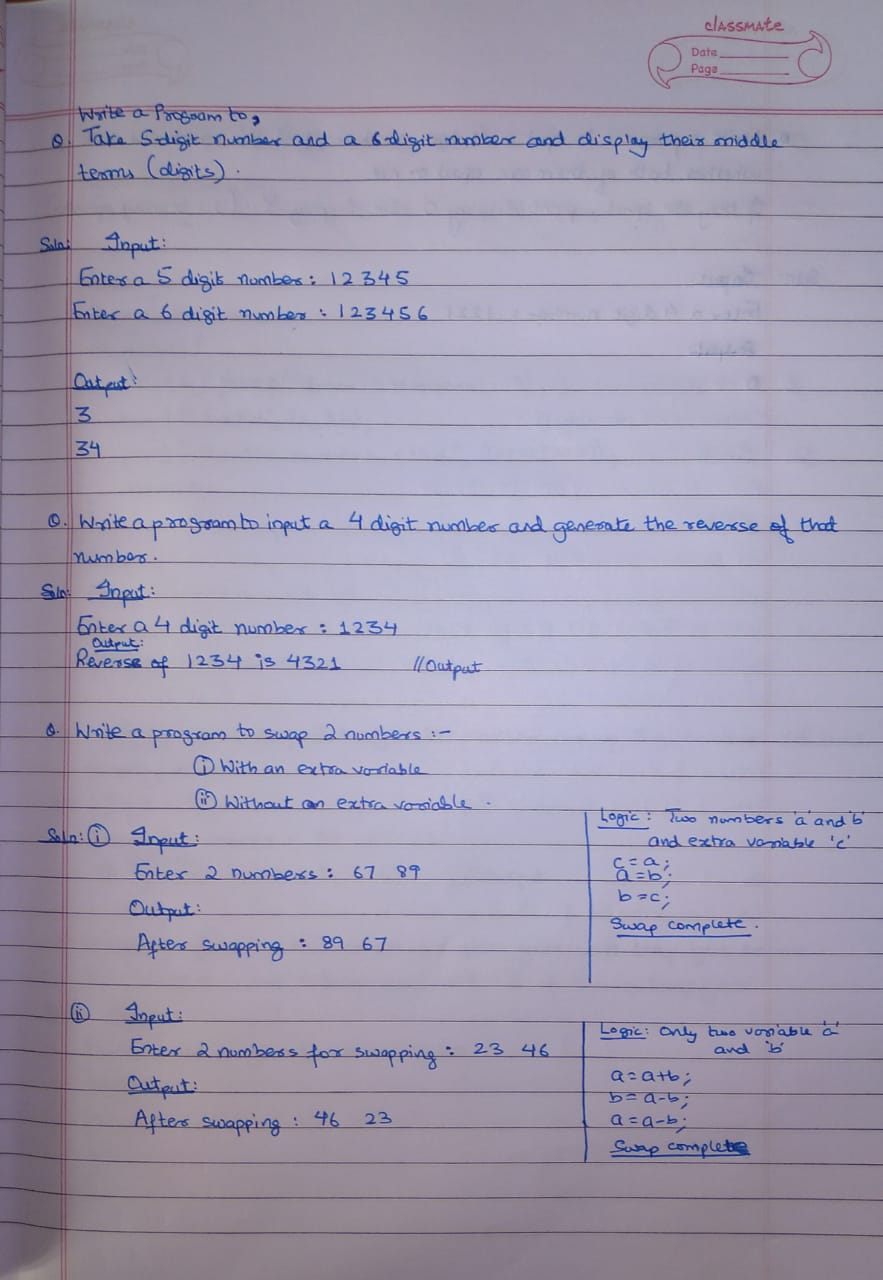 classmate
Date
Page
Write a Program to,
Q. Take 5-digit number and a 6-digit number and display their middle
terms (digits).
Soln: Input:
Enter a 5 digit number: 12345
Enter a 6 digit number: 123456
Output:
3
34
Q. Write a program to input a 4 digit number and generate the reverse of that
number.
Soln: Input:
Enter a 4 digit number: 1234
Output:
Reverse of 1234 is 4321 //Output
Q. Write a program to swap 2 numbers :-
(i) With an extra variable
(ii) Without an extra variable.
Soln: (i) Input:
Enter 2 numbers: 67 89
Output:
After swapping: 89 67
Logic: Two numbers 'a' and 'b'
and extra variable 'c'
c=a;
a=b;
b=c;
Swap complete.
(ii) Input:
Enter 2 numbers for swapping: 23 46
Output:
After swapping: 46 23
Logic: Only two variable 'a'
and 'b'
a=a+b;
b=a-b;
a=a-b;
Swap complete